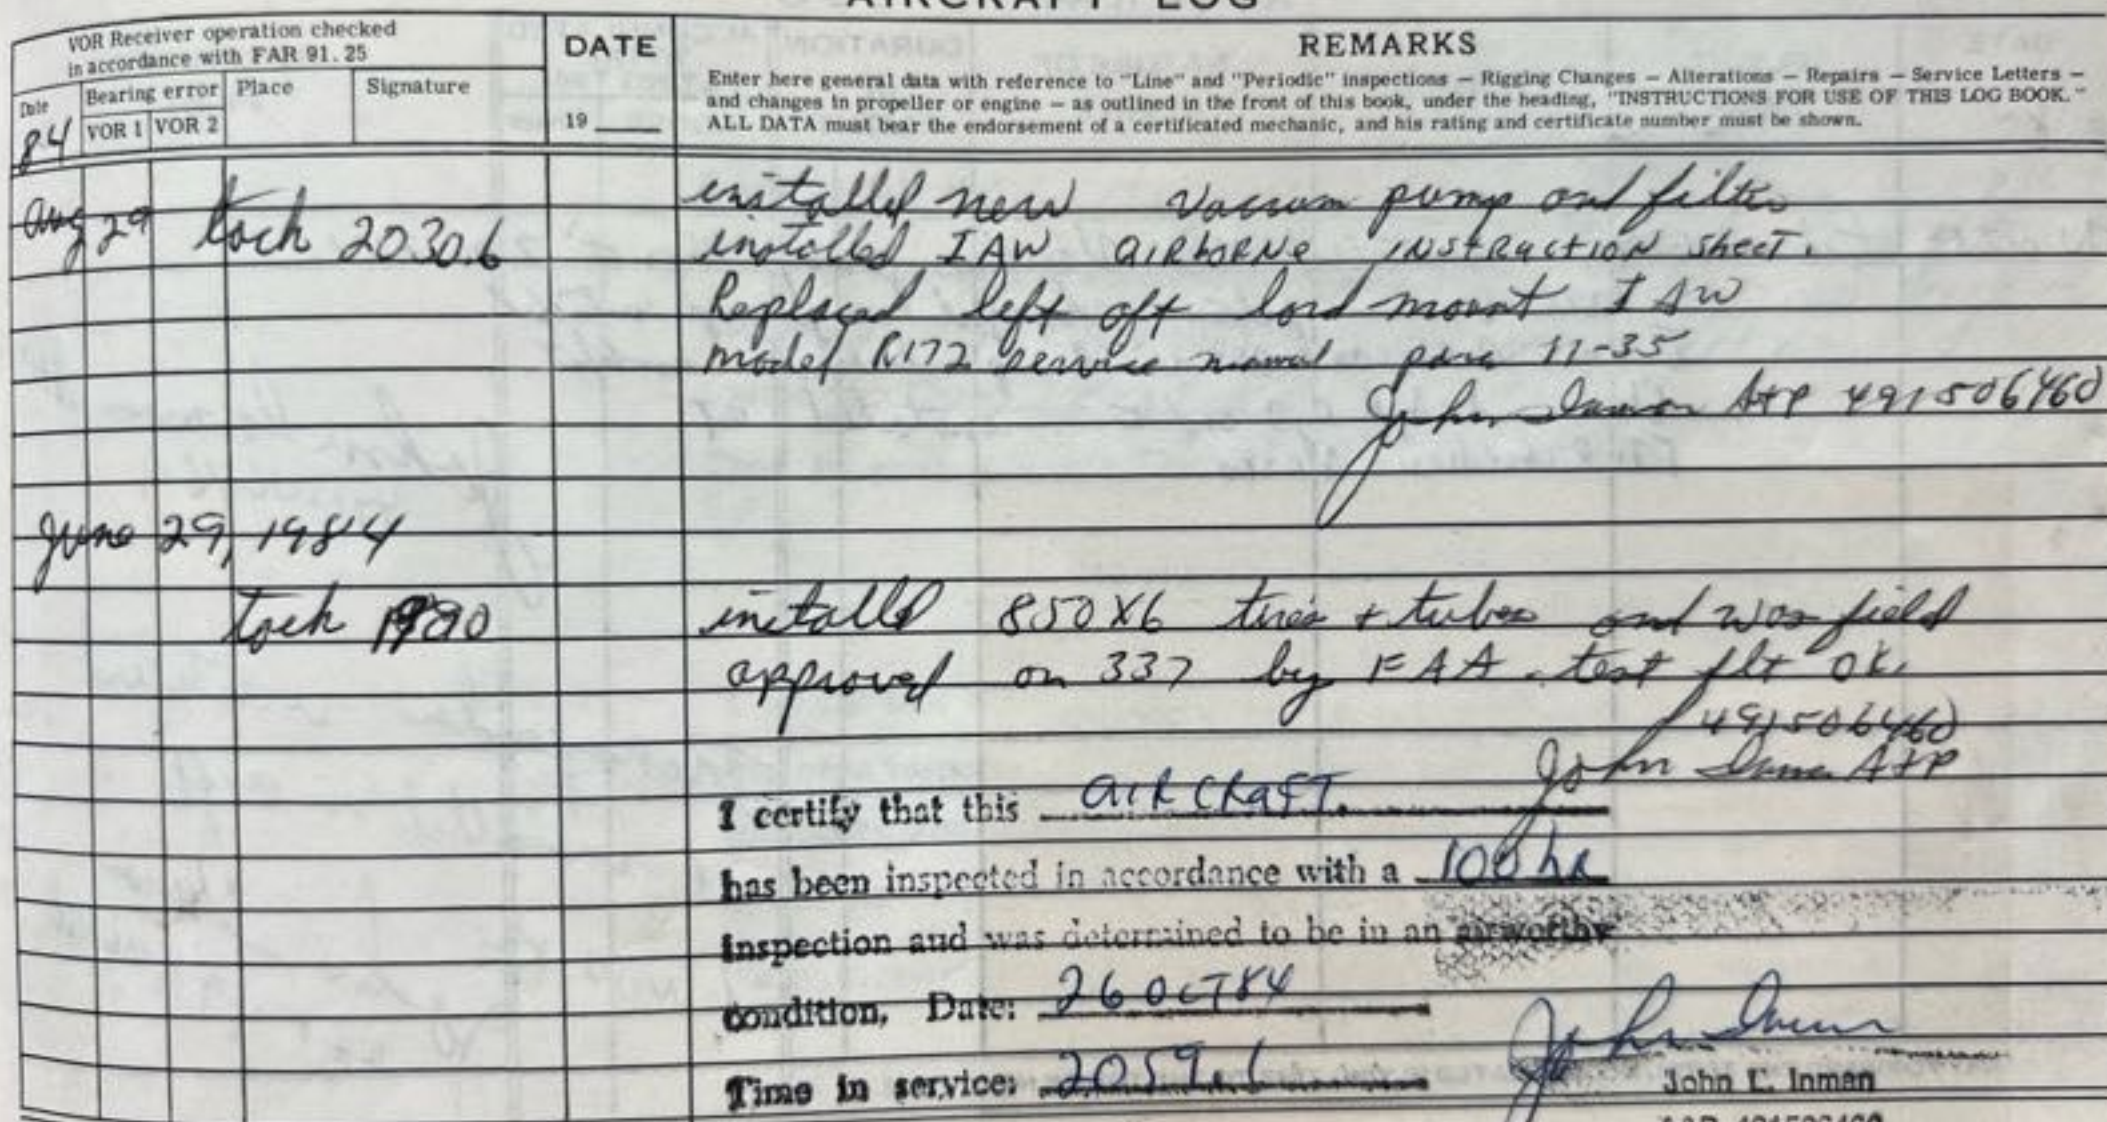 AIRCRAFT LOG
VOR Receiver operation checked
in accordance with FAR 91.25
Date
Bearing error
Place
Signature
VOR 1
VOR 2
84
DATE
19
REMARKS
Enter here general data with reference to "Line" and "Periodic" inspections — Rigging Changes — Alterations — Repairs — Service Letters —
and changes in propeller or engine — as outlined in the front of this book, under the heading, "INSTRUCTIONS FOR USE OF THIS LOG BOOK."
ALL DATA must bear the endorsement of a certificated mechanic, and his rating and certificate number must be shown.
installed new vacuum pump and filter
Aug 29 tach 2030.6 installed IAW AIRBORNE INSTRUCTION Sheet.
Replaced left aft lord mount IAW
model R172 service manual para 11-35
John Inman A+P 491506460
June 29, 1984
tach installed 850X6 tires + tubes and was field
approved on 337 by FAA. test flt ok.
491506460
John Inman A+P
I certify that this aircraft
has been inspected in accordance with a 100 hr
inspection and was determined to be in an airworthy
condition, Date: 26 OCT 84
Time in service: 2059.1
John Inman
John E. Inman